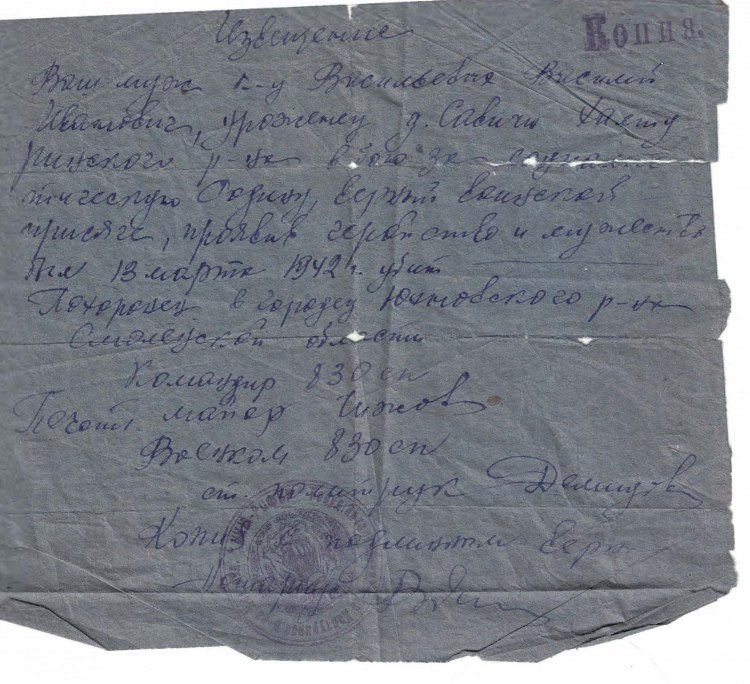 Извещение
Копия.
Ваш муж к-ц Васильевых Василий
Иванович, уроженец д. Савичи
ринского р-на в бою за социалис
тическую Родину, верный воинской
присяге, проявив геройство и мужество
был 13 марта 1942 г. убит
Похоронен в городец Юхновского р-на
Смоленской области
Командир 830 сп
Печать майор Чижов
Военком 830 сп
ст. политрук Демидов
Копия с подлинным верн
Нотариус